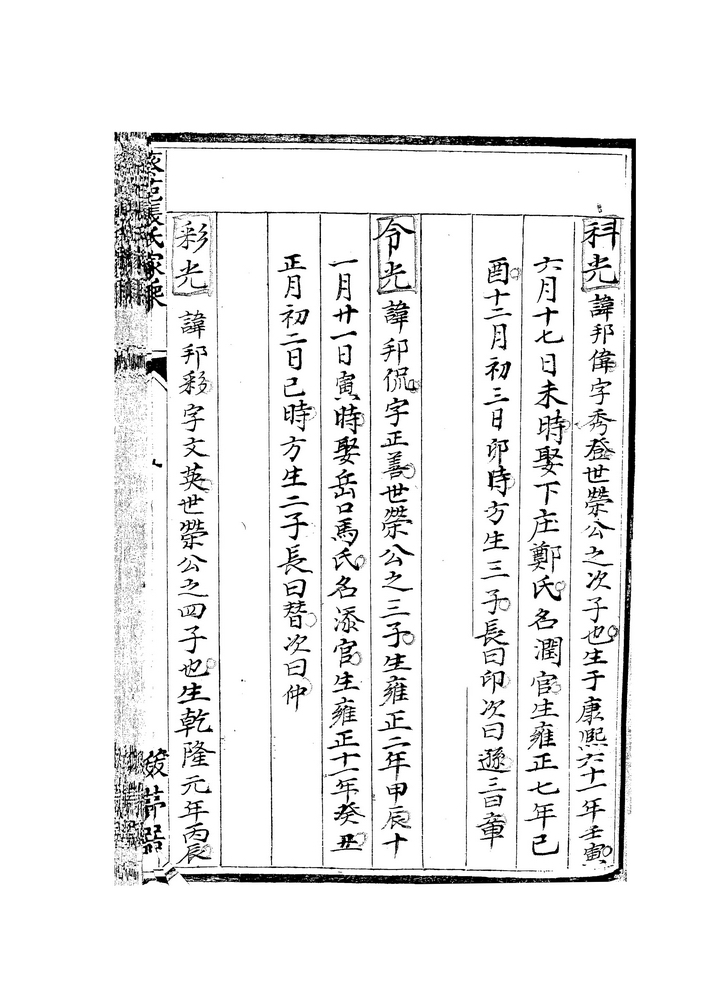 科光 諱邦偉字秀登世榮公之次子也生于康熙六十一年壬寅
六月十七日未時娶下庄鄭氏名潤官生雍正七年己
酉十二月初三日卯時方生三子長曰印次曰遜三曰章
令光 諱邦侃字正善世榮公之三子生雍正二年甲辰十
一月廿一日寅時娶岳口馬氏名添官生雍正十一年癸丑
正月初二日巳時方生二子長曰替次曰仲
彩光 諱邦彩字文英世榮公之四子也生乾隆元年丙辰
張氏家乘